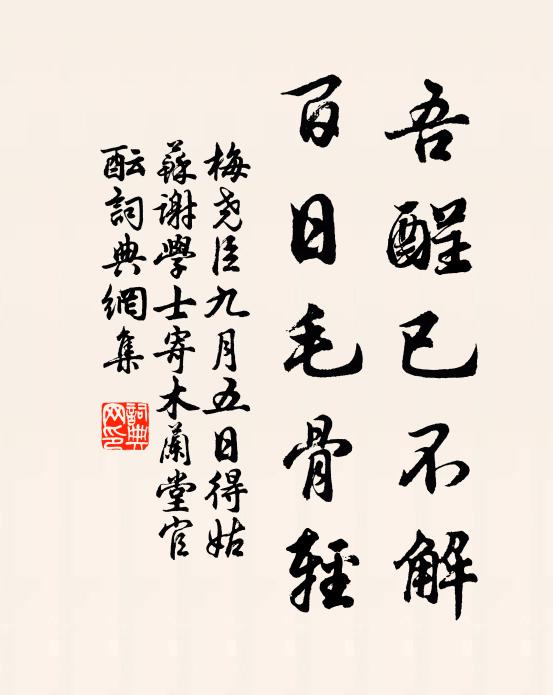 吾醒已不解
百日毛骨輕
梅堯臣九月五日得姑
蘇謝學士寄木蘭堂官
酝詞典網集
詞典
网印